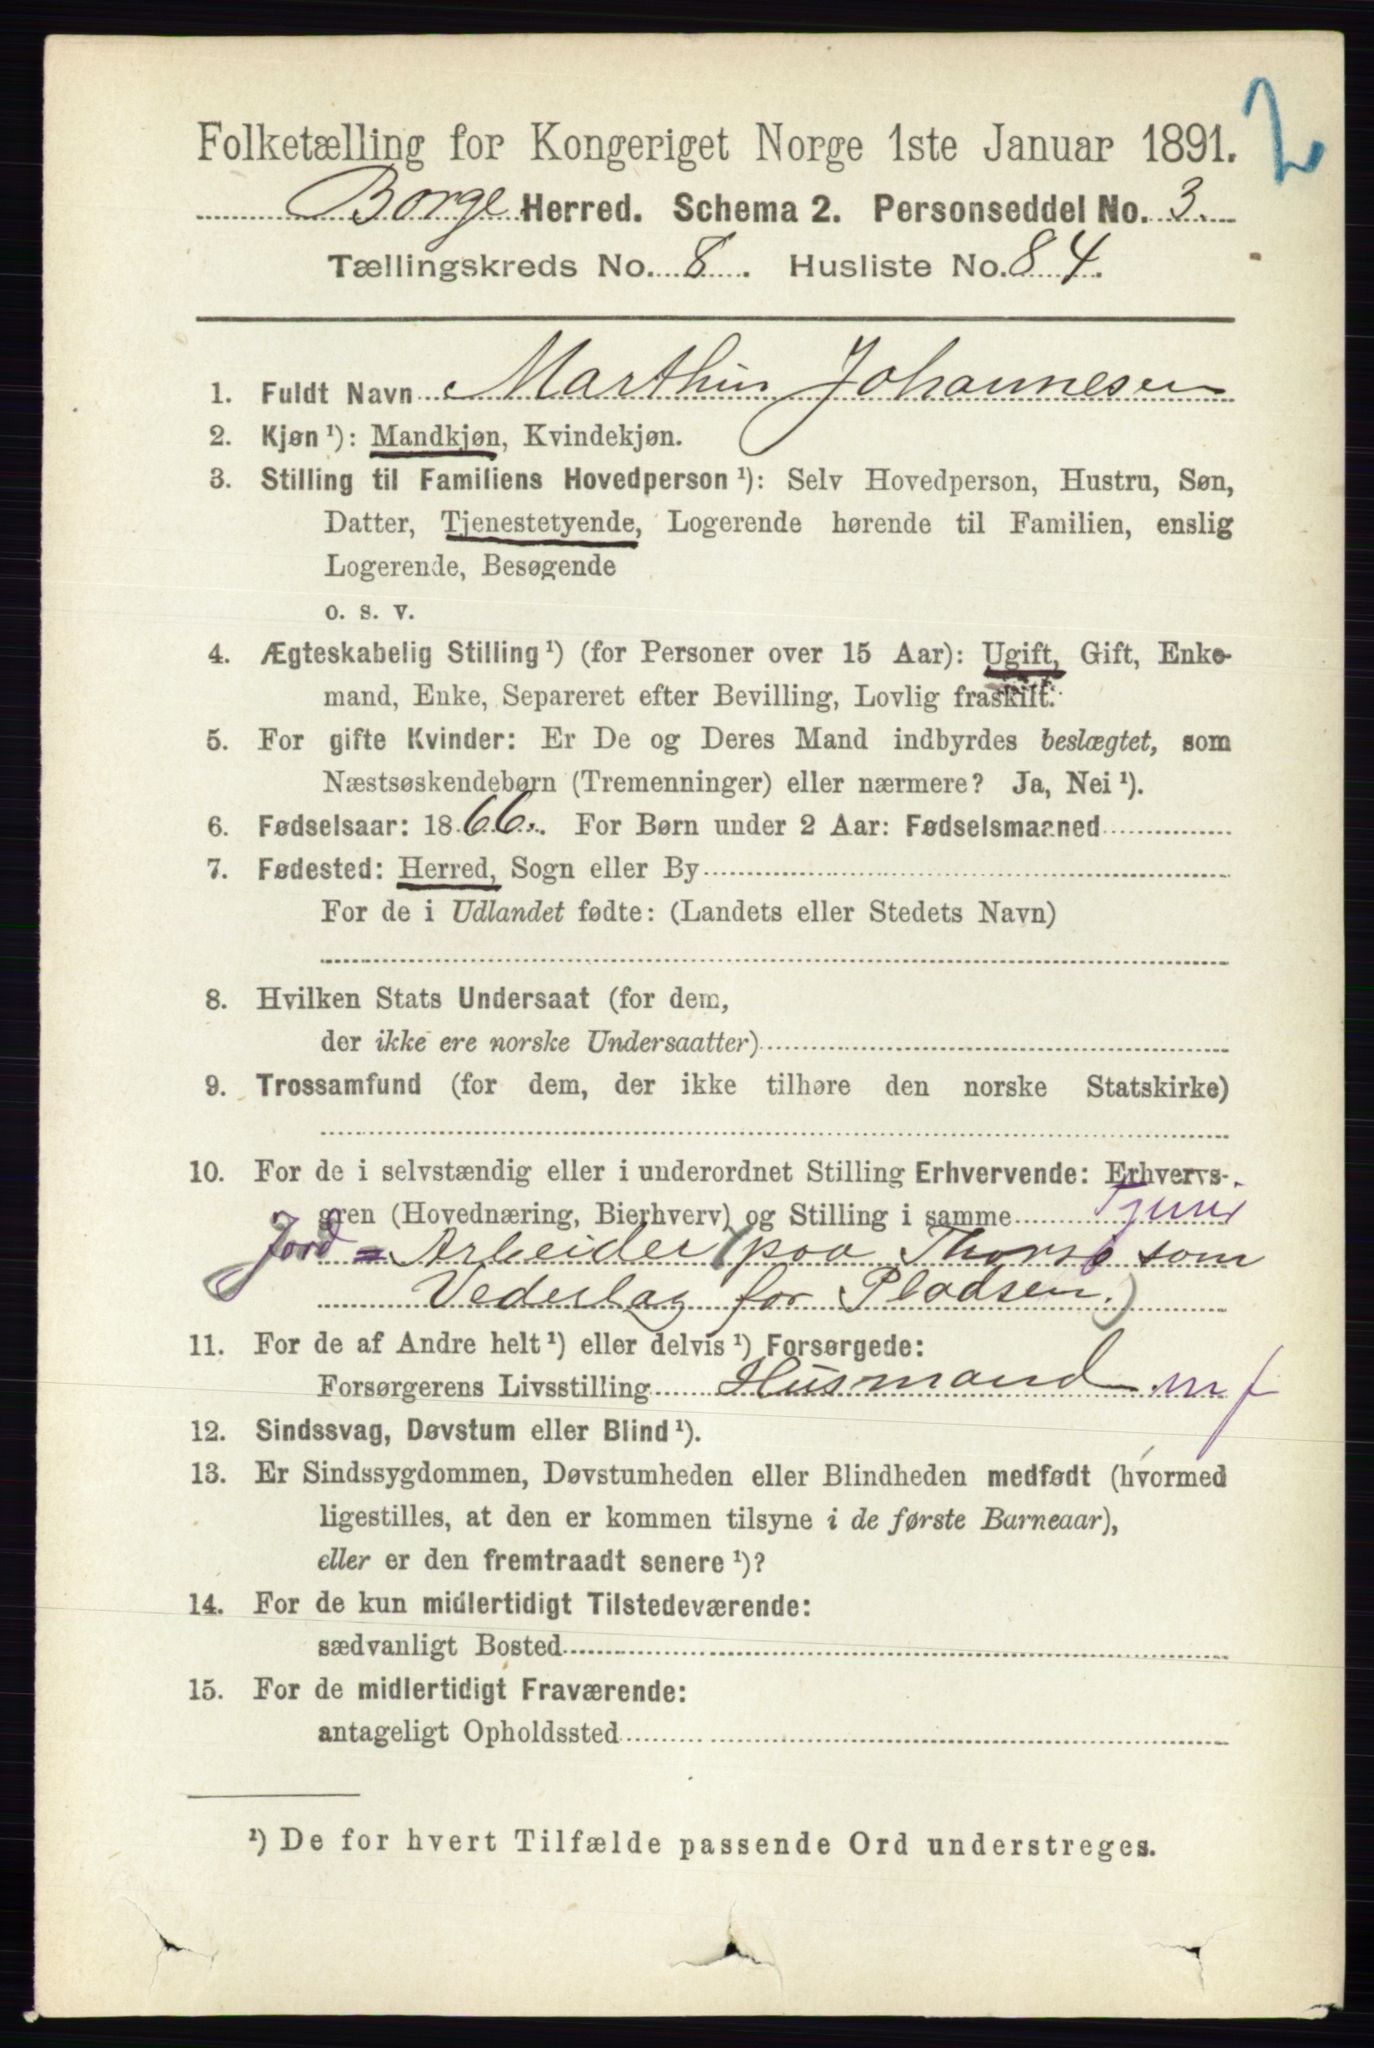 2
Folketælling for Kongeriget Norge 1ste Januar 1891.
Borge Herred. Schema 2. Personseddel No. 3.
Tællingskreds No. 8. Husliste No. 84.
1. Fuldt Navn Marthin Johannesen
2. Kjøn¹): Mandkjøn, Kvindekjøn.
3. Stilling til Familiens Hovedperson¹): Selv Hovedperson, Hustru, Søn,
Datter, Tjenestetyende, Logerende hørende til Familien, enslig
Logerende, Besøgende
o. s. v.
4. Ægteskabelig Stilling¹) (for Personer over 15 Aar): Ugift, Gift, Enke-
mand, Enke, Separeret efter Bevilling, Lovlig fraskilt.
5. For gifte Kvinder: Er De og Deres Mand indbyrdes beslægtet, som
Næstsøskendebørn (Tremenninger) eller nærmere? Ja, Nei¹).
6. Fødselsaar: 1866. For Børn under 2 Aar: Fødselsmaaned
7. Fødested: Herred, Sogn eller By
For de i Udlandet fødte: (Landets eller Stedets Navn)
8. Hvilken Stats Undersaat (for dem,
der ikke ere norske Undersaatter)
9. Trossamfund (for dem, der ikke tilhøre den norske Statskirke)
10. For de i selvstændig eller i underordnet Stilling Erhvervende: Erhvervs-
gren (Hovednæring, Bierhverv) og Stilling i samme
Jord = Arbeider (paa Thorsø som
Vederlag for Pladsen.)
11. For de af Andre helt¹) eller delvis¹) Forsørgede:
Forsørgerens Livsstilling Husmand m f
12. Sindssvag, Døvstum eller Blind¹).
13. Er Sindssygdommen, Døvstumheden eller Blindheden medfødt (hvormed
ligestilles, at den er kommen tilsyne i de første Barneaar),
eller er den fremtraadt senere¹)?
14. For de kun midlertidigt Tilstedeværende:
sædvanligt Bosted
15. For de midlertidigt Fraværende:
antageligt Opholdssted
¹) De for hvert Tilfælde passende Ord understreges.